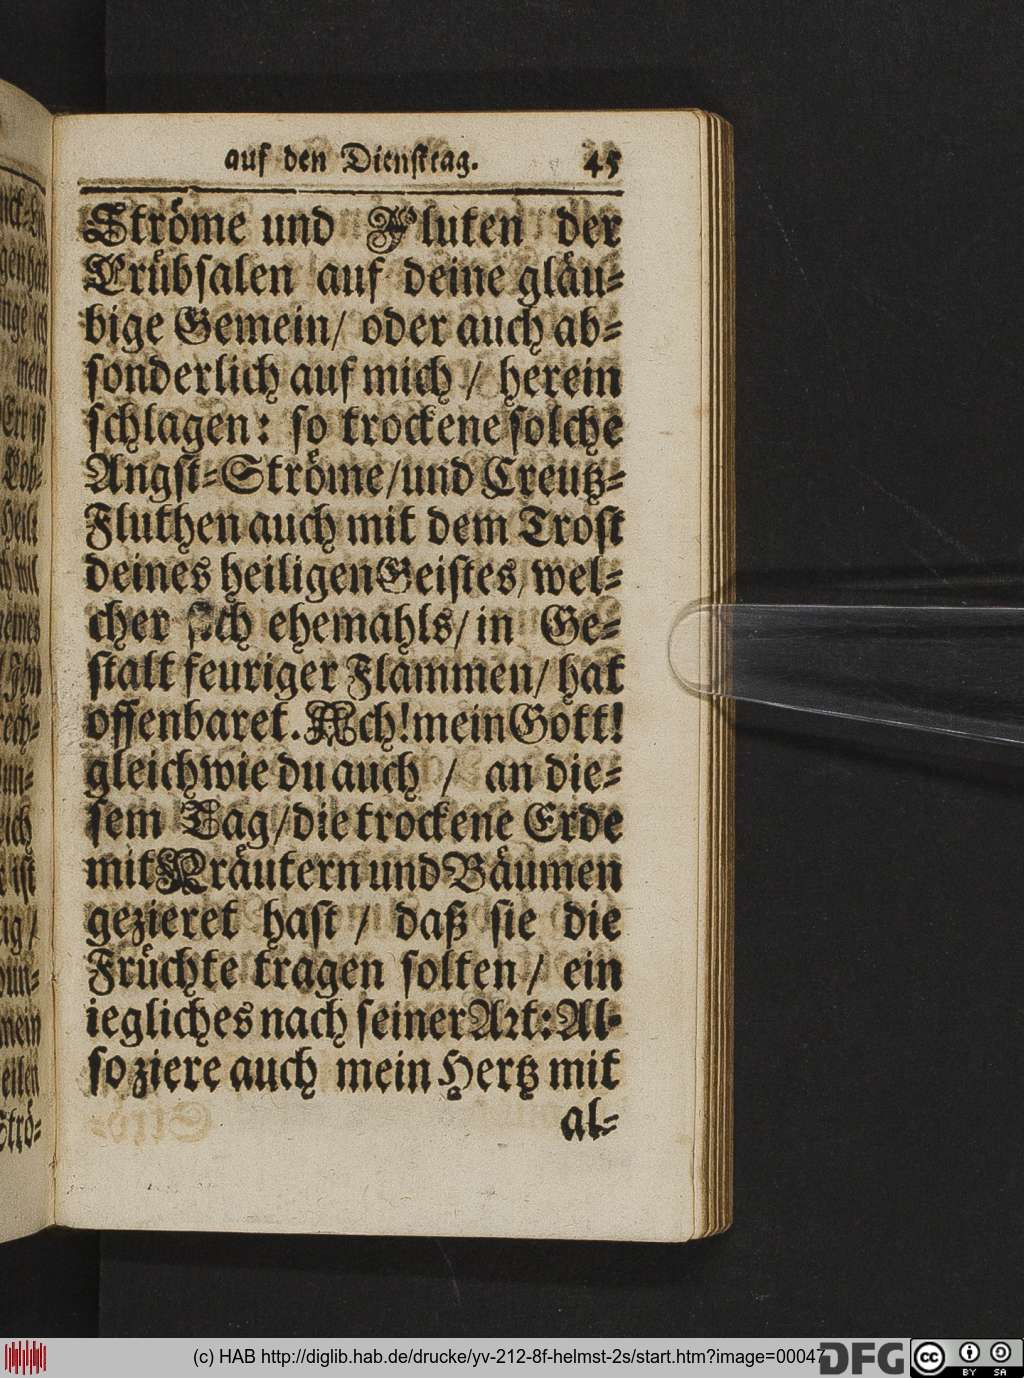 auf den Dienſtag. 45
Ströme und Fluten der
Trübſalen auf deine gläu-
bige Gemein/ oder auch ab-
ſonderlich auf mich / herein
ſchlagen: ſo trockene ſolche
Angſt-Ströme/und Creutz-
Fluthen auch mit dem Troſt
deines heiligen Geiſtes/ wel-
cher ſich ehemahls/ in Ge-
ſtalt feuriger Flammen/ hat
offenbaret. Ach! mein Gott!
gleichwie du auch / an die-
ſem Tag/die trockene Erde
mit Kräutern und Bäumen
gezieret haſt / daß ſie die
Früchte tragen ſolten / ein
iegliches nach ſeiner Art: Al-
ſo ziere auch mein Hertz mit
al-
(c) HAB http://diglib.hab.de/drucke/yv-212-8f-helmst-2s/start.htm?image=00047
DFG
cc BY SA